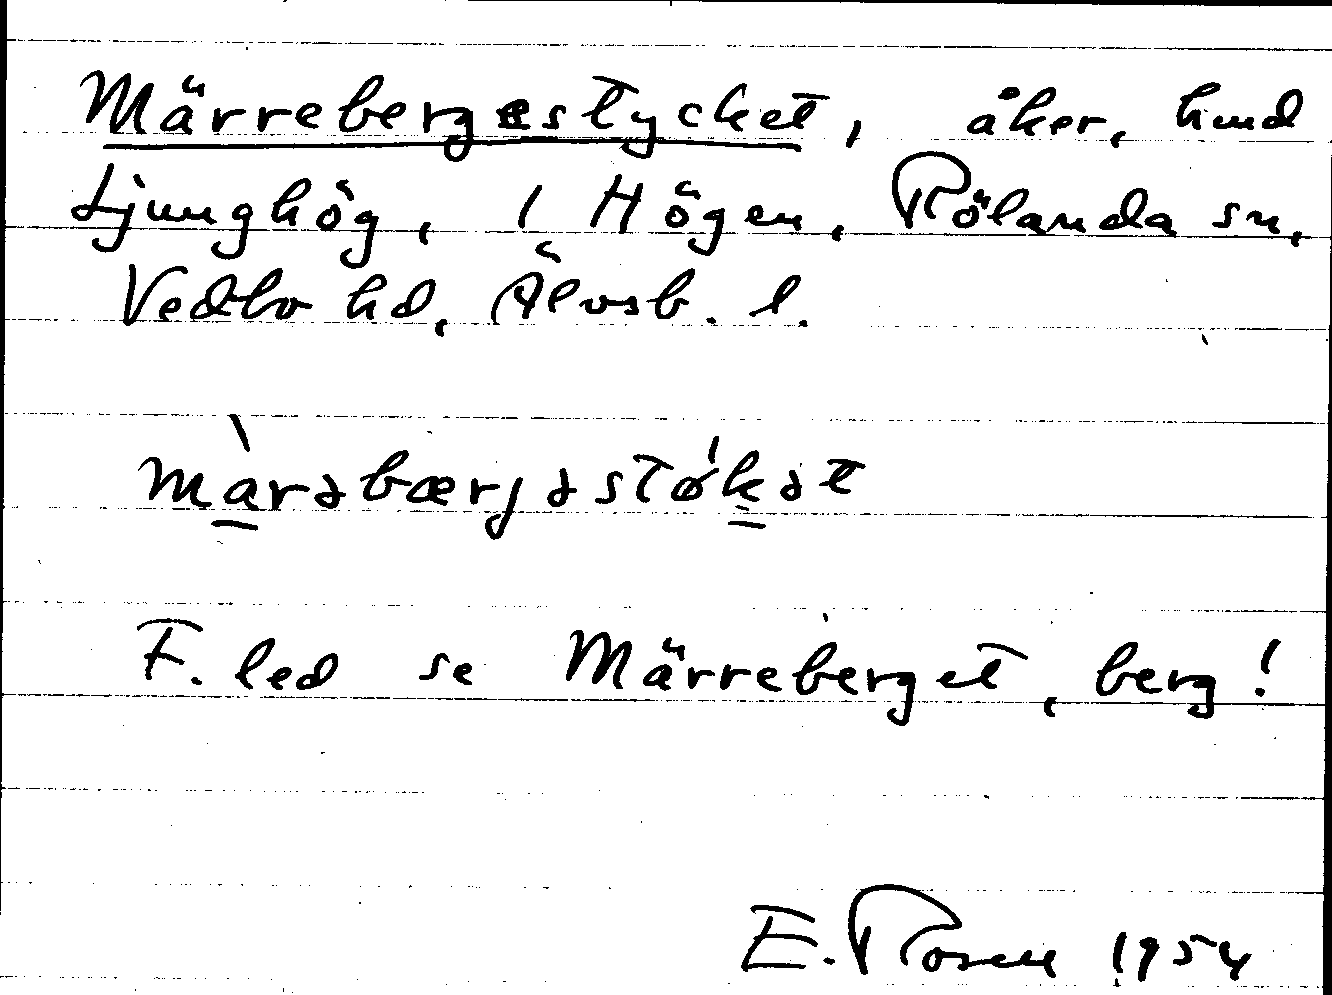 Märrebergestycket, åker, hmd
Ljunghög, 1 Högen, Rölanda sn,
Vedbo hd, Älvsb. l.
màrəbærjəstǿkət
F. led se Märreberget, berg!
E. Rosen 1954